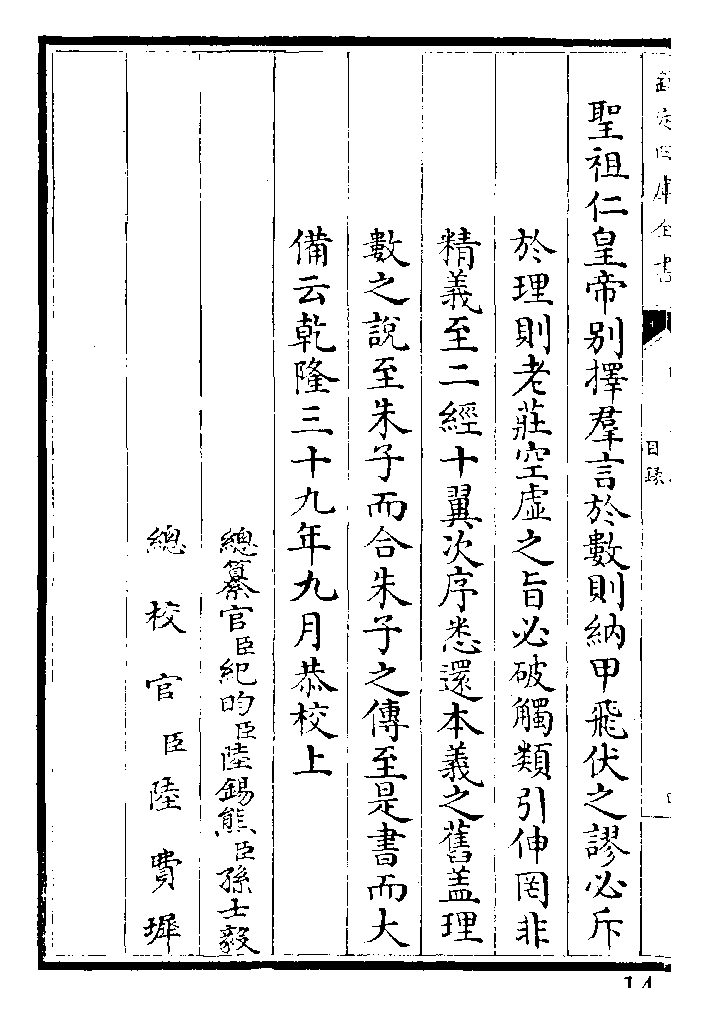 欽定四庫全書
目錄
聖祖仁皇帝別擇羣言於數則納甲飛伏之謬必斥
於理則老莊空虛之旨必破觸類引伸罔非
精義至二經十翼次序悉還本義之舊盖理
數之說至朱子而合朱子之傳至是書而大
備云乾隆三十九年九月恭校上
總纂官臣紀昀臣陸錫熊臣孫士毅
總校官臣陸費墀
14